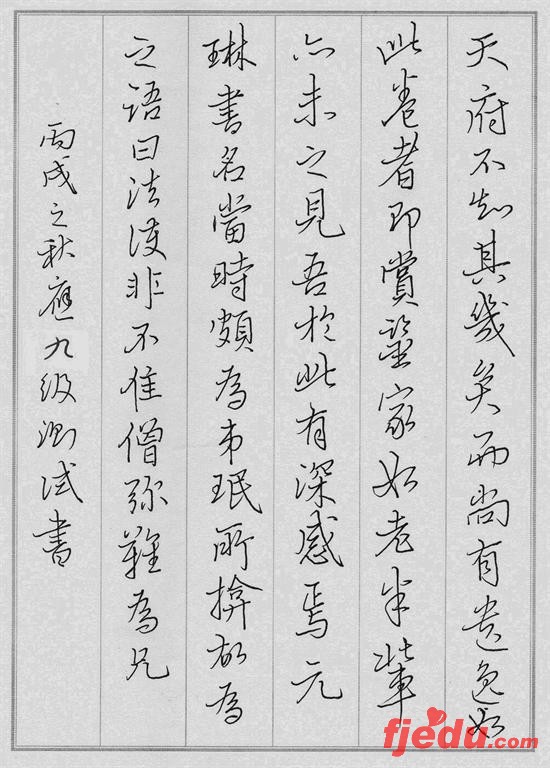 天府不知其幾矣而尚有遺逸如
此卷者即賞鑒家如老米輩
亦未之見吾於此有深感焉元
琳書名當時頗為弟珉所揜故為
之語曰法護非不佳僧彌難為兄
丙戌之秋應九級測試書
fjedu.com